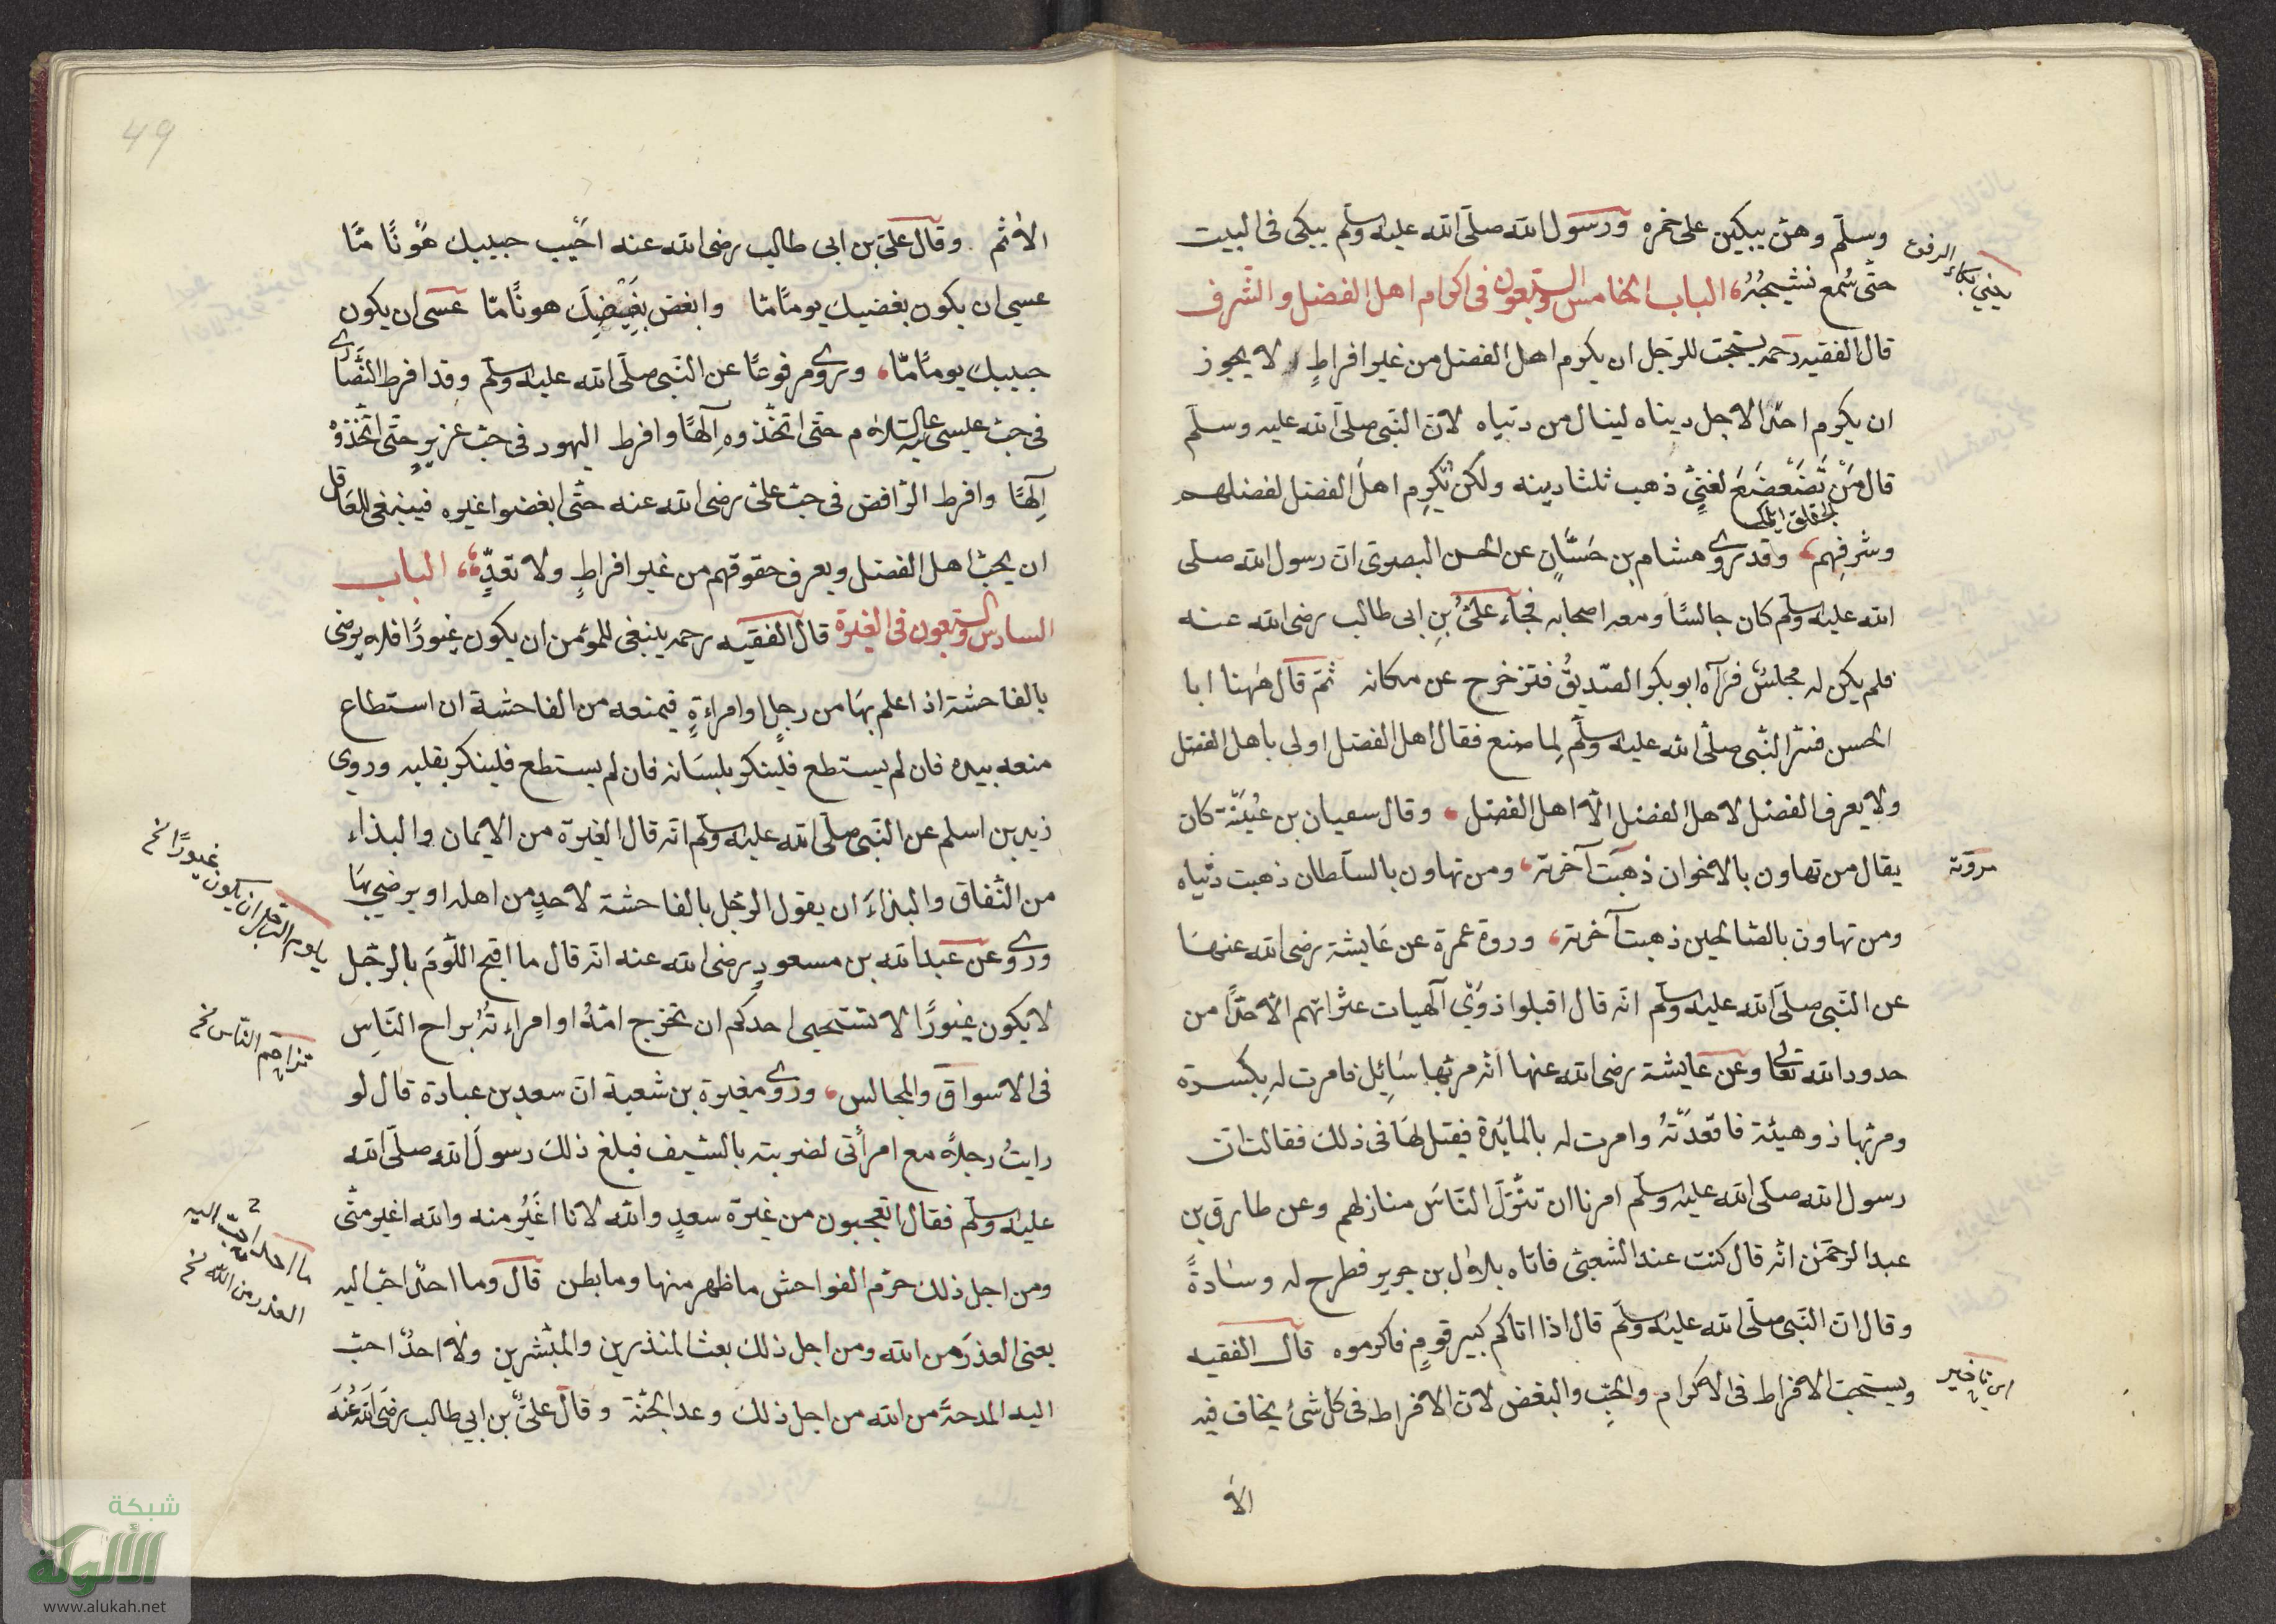 وسلّم وهنّ يبكين على خمره ورسول الله صلّى الله عليه وسلّم يبكى فى البيت
حتّى سُمع نشيجُهُ، الباب الخامس والسّبعون فى اكرام اهل الفضل والشّرف
قال الفقيه رحمه يستحبّ للرّجل ان يكرم اهل الفضل من غير افراطٍ لا يجوز
ان يكرم احدًا لاجل دنياه لينال من دنياه لانّ النّبى صلّى الله عليه وسلّم
قال مَنْ تَضَعْضَعَ لغنىٍّ ذهب ثلثا دينه ولكن يُكرِم اهلَ الفضل لفضلهم
وشرفِهم، وقد روى هشام بن حَسَّانٍ عن الحسن البصرىّ انّ رسول الله صلى
الله عليه وسلّم كان جالسًا ومعه اصحابه فجآء علىُّ بنِ ابى طالب رضى الله عنه
فلم يكن له مجلسٌ فرآه ابو بكر الصّديقُ فتزخرح عن مكانه ثمّ قال هٰهنا ابا
الحسن فسّر النّبى صلّى الله عليه وسلّم لِما صنع فقال اهل الفضل اولى باهل الفضل
ولا يعرف الفضل لاهل الفضل الّا اهل الفضل، وقال سفيان بن عُيَيْنَة كان
يقال من تهاون بالاخوان ذهبَت آخرته، ومن تهاون بالسّلطان ذهبت دنياه
مروّته
ومن تهاون بالصّالحين ذهبت آخرته، وروة عمرة عن عَايشة رضى الله عنهَا
عن النّبى صلّى الله عليه وسلّم انّه قال اقبلوا ذوَىِ الهيات عثراتهم الّا حدًّا من
حدود الله تعالى وعن عايشة رضى الله عنها انّه مرّ بها سَائِل فامرت له بِكسرة
ومرّ بها ذو هيئة فاقعَدَتْهُ وامرت له بالمايدة فقيل لهَا فى ذلك فقالت انّ
رسول الله صلّى الله عليه وسلّم امرنا ان ننَزّل النّاسَ منازلهم وعن طارق بن
عبد الرحمٰن انّه قال كنت عند الشعبىّ فاتاه بلال بن جرير فطرح له وسَادةً
وقال انّ النّبى صلّى الله عليه وسلّم قال اذا اتاكم كبير قومٍ فاكرموه قال الفقيه
ويستحبّ الافراط فى الاكرام والحبّ والبغض لانّ الافراط فى كلّ شئ يخاف فيه
الا
الاثم. وقال علىّ بن ابى طالب رضى الله عنه احْبِب حبيبك هَوْنًا مّا
عسى ان يكون بغضيك يومًا مّا وابغض بَغِيضِكَ هونًا مّا عسى ان يكون
حبيبك يومًا مّا، وروى مرفوعًا عن النّبى صلّى الله عليه وسلّم وقد افرط النّصَارى
فى حبّ عيسى عليه السّلام حتّى اتّخذوه اِلٰهًا وافرط اليهود فى حبّ عزيرٍ حتّى اتّخذوه
اِلٰهًا وافرط الرّافض فى حبّ علىّ رضى الله عنه حتّى ابغضوا غيره فينبغى للعَاقل
ان يحبّ اهل الفضل ويعرف حقوقهم من غير افراطٍ ولا تعدٍّ، الباب
السادس والسّبعون فى الغيرة قال الفقيه رحمه ينبغى للمؤمن ان يكون غيورًا فلا يرضى
بالفاحشة اذا علم بهَا من رجلٍ او امراءةٍ فيمنعه من الفاحشة ان استطاع
منعه بيده فان لم يستطع فلينكر بلسَانه فان لم يستطع فلينكر بقلبه وروى
زيد بن اسلم عن النّبى صلّى الله عليه وسلّم انّه قال الغيرة من الايمان والبذاء
من النّفاق والبذاءَ ان يقول الرّجل بالفاحشة لاحدٍ من اهله او يرضى بهَا
وروى عن عبد الله بن مسعودٍ رضى الله عنه انّه قال ما اقبح اللّوَمَ بالرّجل
يا لوم الرّجل ان يكون غيورًا نخ
لا يكون غيورًا لا تستحيى احدكم ان تخرج امتهُ او امراءتُهُ براح النّاسِ
تزاحم النّاس نخ
فى الاسواق والمجالس، وروى مغيرة بن شعبة انّ سعد بن عبادة قال لو
رايتُ رجلًا مع امرأتى لضربته بالسّيف فبلغ ذلك رسولَ الله صلّى الله
عليه وسلّم فقال اتعجبون من غيرة سعدٍ والله لانا اغْيَرُ منه والله اغير منّى
ما احد احبّ اليه العذر من الله نخ
ومن اجل ذلك حرّم الفواحش ما ظهر منها وما بطن قال وما احدٌ احبّ اليه
يعنى العذرَ من الله ومن اجل ذلك بعث المنذرين والمبشّرين ولا احدٌ احبّ
اليه المدحةَ من الله من اجل ذلك وعد الجنّة وقال علىُّ بن ابى طالب رضى الله عنه
49
شبكة
الألوكة
www.alukah.net